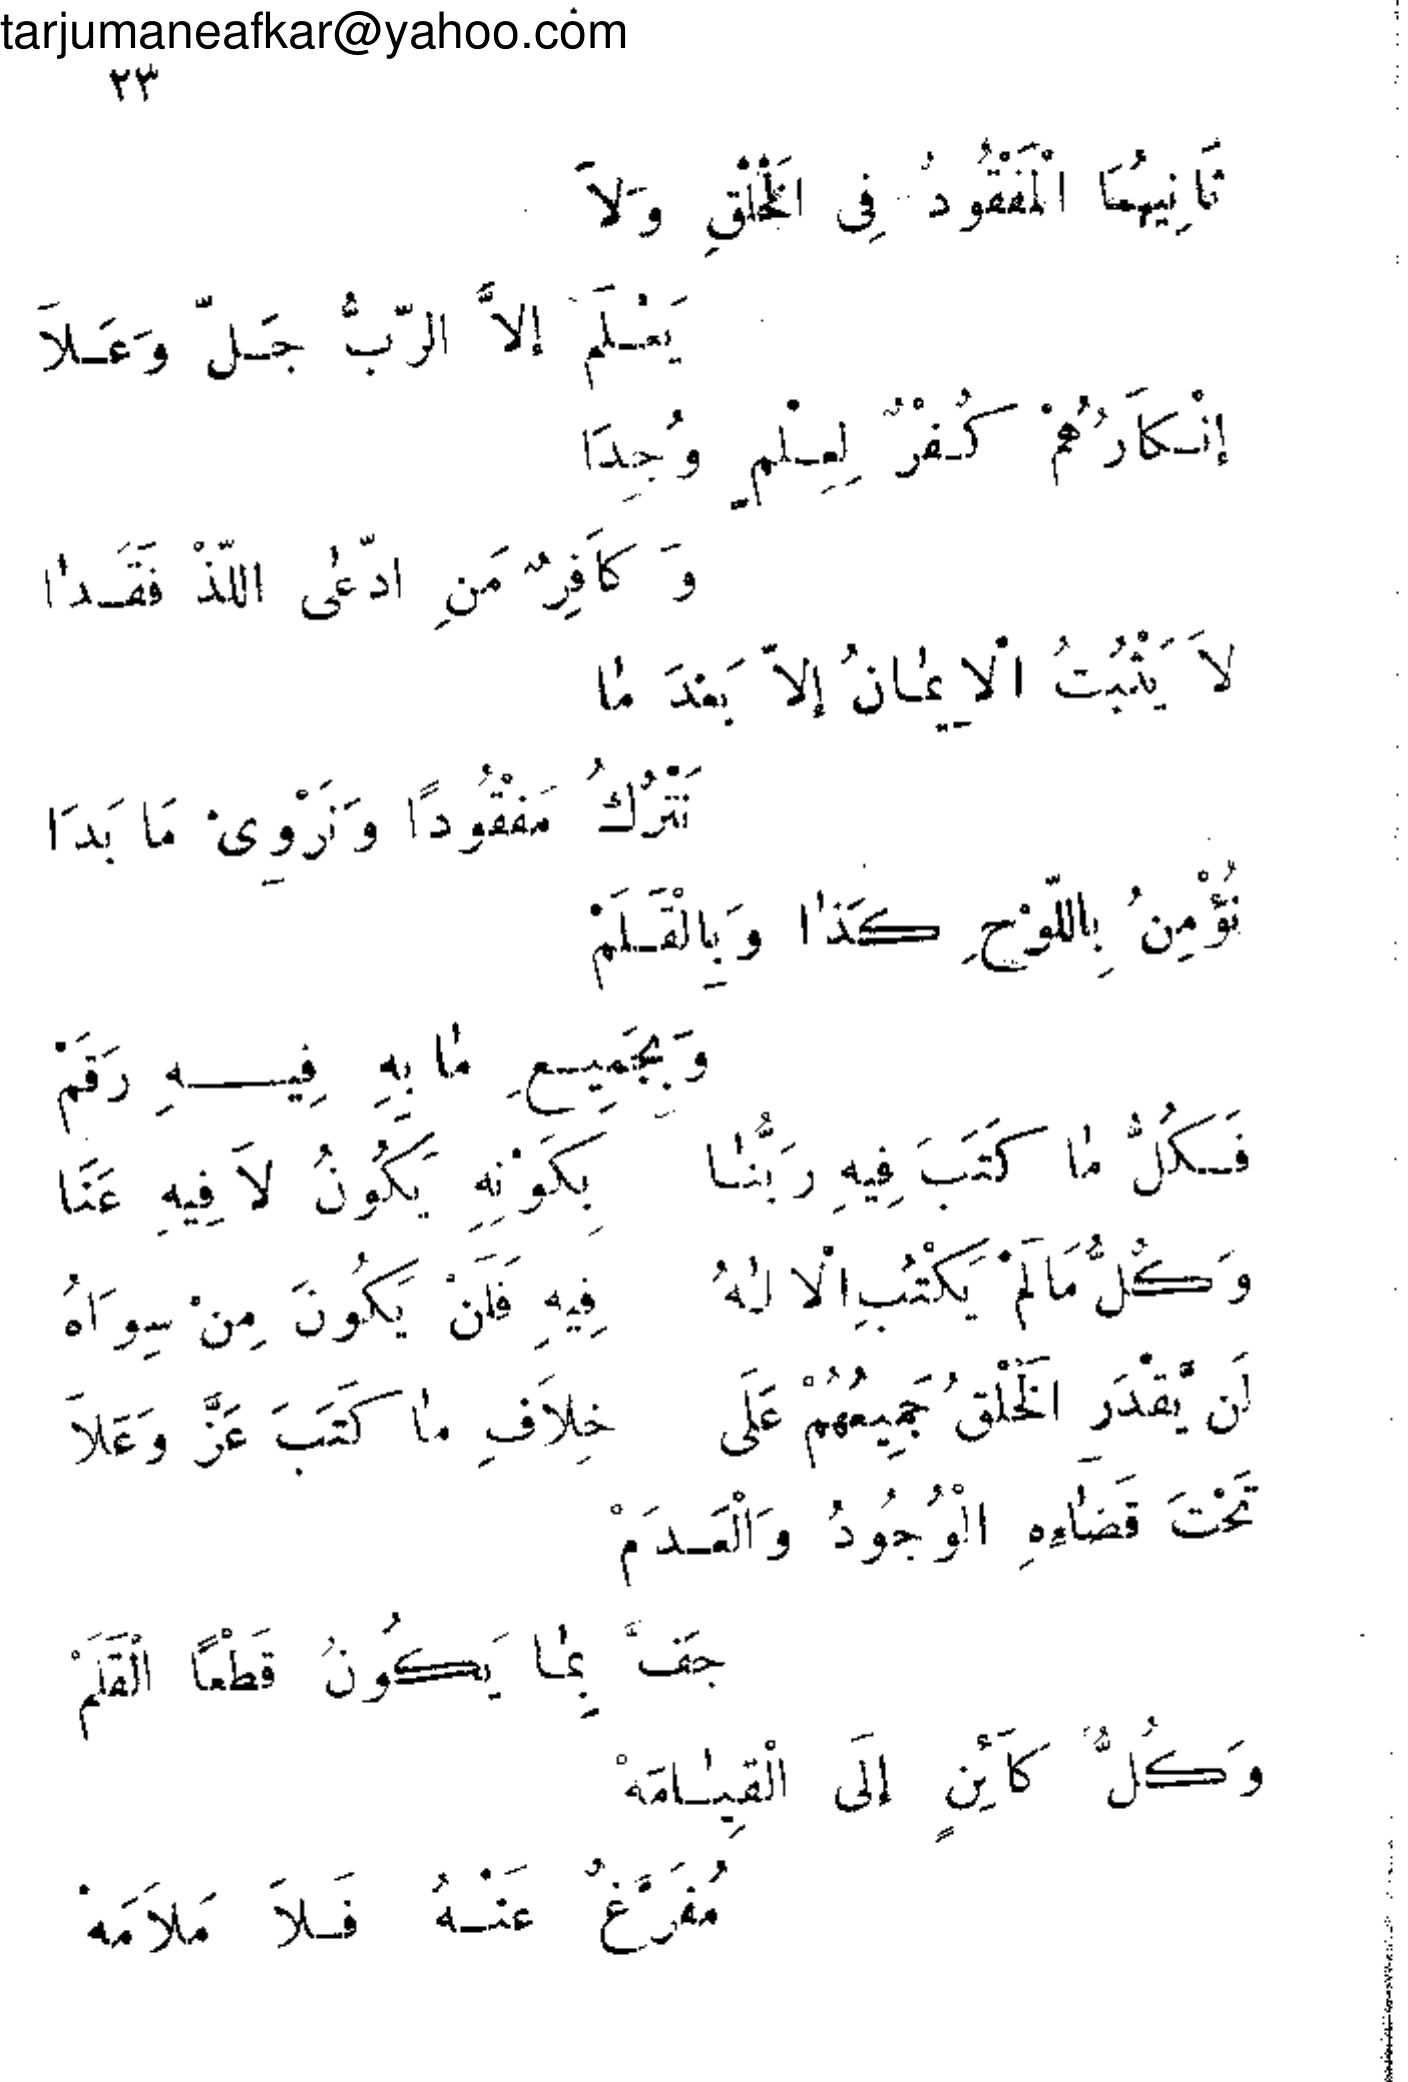 tarjumaneafkar@yahoo.com
٢٣
ثَانِيهُمَا الْمَفْقُودُ فِى الْخَلْقِ وَلاَ
يَعْلَمُ إلاَّ الرّبُّ جَلّ وَعَلاَ
إنْكَارُهُمْ كُفْرٌ لِعِلْمٍ وُجِدَا
وَ كَافِرٌ مَنِ ادّعٰى اللّذْ فَقَدٰا
لاَ يَثْبُتُ الْاِيمٰانُ إلاّ بَعْدَ مٰا
نَتْرُكُ مَفْقُودًا وَنَرْوِىْ مَا بَدَا
نُؤْمِنُ بِاللّوْحِ كَذٰا وَبِالْقَلَمْ
وَبِجَمِيعِ مٰا بِهِ فِيهِ رَقَمْ
فَكُلُّ مٰا كَتَبَ فِيهِ رَبُّنٰا بِكَوْنِهِ يَكُونُ لاَ فِيهِ عَنَا
وَكُلُّ مَالَمْ يَكْتُبِ الْالٰهُ فِيهِ فَلَنْ يَكُونَ مِنْ سِوَاهُ
لَن يَّقْدَرِ الْخَلْقُ جَمِيعُهُمْ عَلَى خِلاَفِ مٰا كَتَبَ عَزَّ وَعَلاَ
تَحْتَ قَضَاءِهِ الْوُجُودُ وَالْعَدَمْ
جَفَّ بِمٰا يَكُونُ قَطْعاً الْقَلَمْ
وَكُلُّ كَائِنٍ إلَى الْقِيٰامَهْ
مُفَرَّغٌ عَنْهُ فَلاَ مَلاَمَهْ